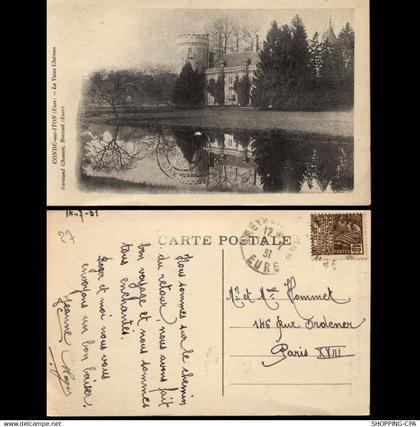 CONDÉ-sur-ITON (Eure) — Le Vieux Château
Bertrand Chomot, Breteuil (Eure)
14-7-31
27
CARTE POSTALE
Nous sommes sur le chemin
du retour, nous avons fait
bon voyage et nous sommes
tous enchantés.
Roger et moi nous vous
envoyons un bon baiser.
Jeanne Roger
12
31
EURE
Mr et Mme Hommet
146 Rue Ordener
Paris XVIII
WWW.SHOPPING-CPA.COM